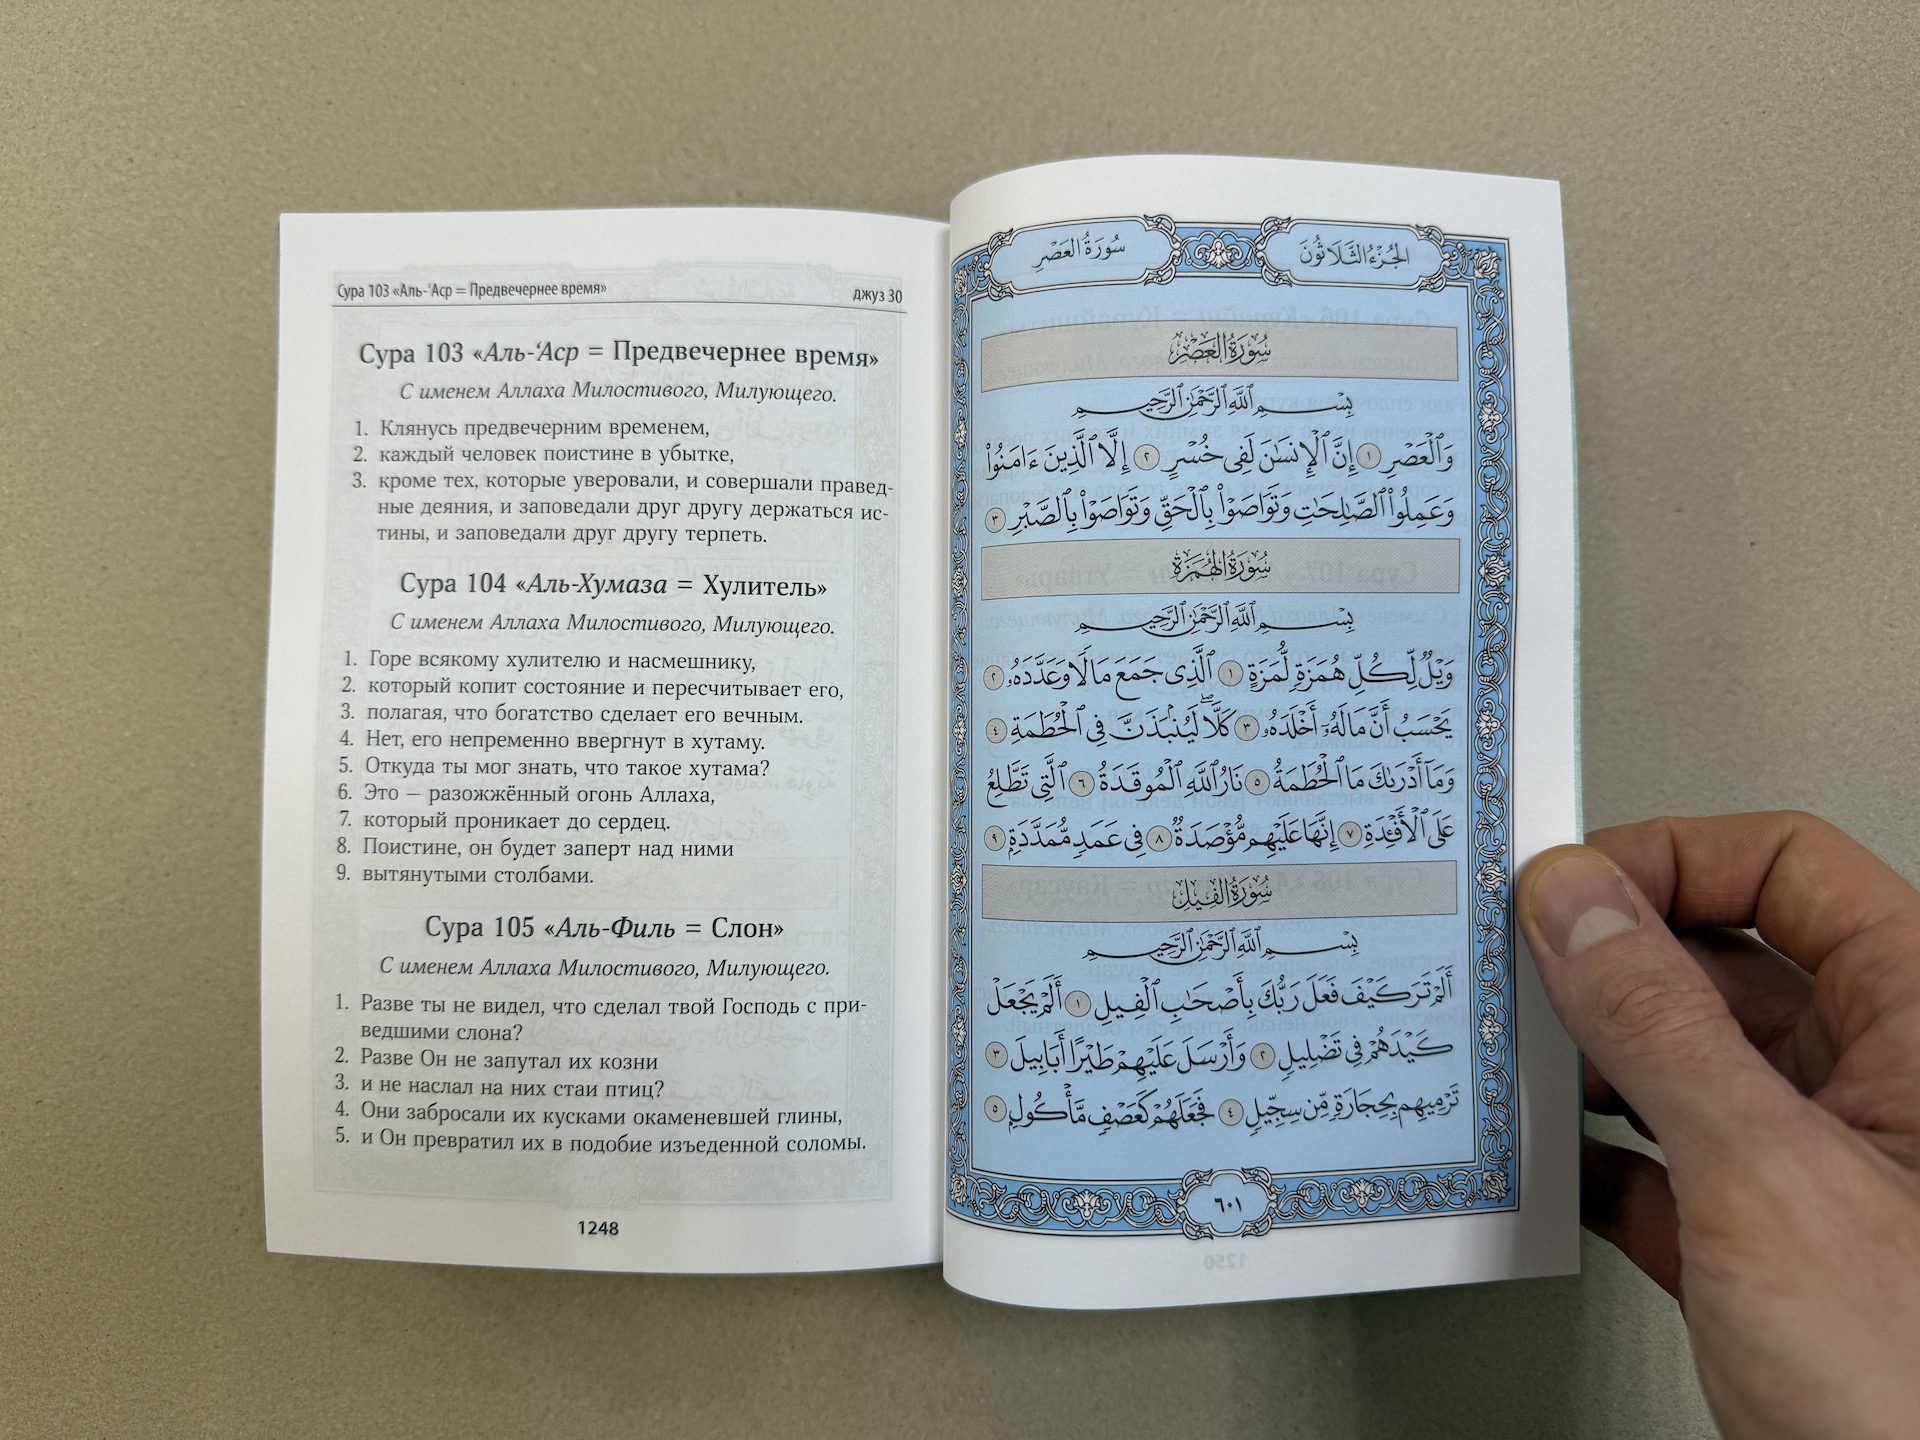 Сура 103 «Аль-‘Аср = Предвечернее время» джуз 30
Сура 103 «Аль-‘Аср = Предвечернее время»
С именем Аллаха Милостивого, Милующего.
1. Клянусь предвечерним временем,
2. каждый человек поистине в убытке,
3. кроме тех, которые уверовали, и совершали правед-
ные деяния, и заповедали друг другу держаться ис-
тины, и заповедали друг другу терпеть.
Сура 104 «Аль-Хумаза = Хулитель»
С именем Аллаха Милостивого, Милующего.
1. Горе всякому хулителю и насмешнику,
2. который копит состояние и пересчитывает его,
3. полагая, что богатство сделает его вечным.
4. Нет, его непременно ввергнут в хутаму.
5. Откуда ты мог знать, что такое хутама?
6. Это — разожжённый огонь Аллаха,
7. который проникает до сердец.
8. Поистине, он будет заперт над ними
9. вытянутыми столбами.
Сура 105 «Аль-Филь = Слон»
С именем Аллаха Милостивого, Милующего.
1. Разве ты не видел, что сделал твой Господь с при-
ведшими слона?
2. Разве Он не запутал их козни
3. и не наслал на них стаи птиц?
4. Они забросали их кусками окаменевшей глины,
5. и Он превратил их в подобие изъеденной соломы.
1248
الجُزْءُ الثَّلَاثُونَ سُورَةُ العَصْرِ
سُورَةُ العَصْرِ
بِسْمِ ٱللَّهِ ٱلرَّحْمَٰنِ ٱلرَّحِيمِ
وَٱلْعَصْرِ ١ إِنَّ ٱلْإِنسَٰنَ لَفِى خُسْرٍ ٢ إِلَّا ٱلَّذِينَ ءَامَنُوا۟
وَعَمِلُوا۟ ٱلصَّٰلِحَٰتِ وَتَوَاصَوْا۟ بِٱلْحَقِّ وَتَوَاصَوْا۟ بِٱلصَّبْرِ ٣
سُورَةُ الهُمَزَةِ
بِسْمِ ٱللَّهِ ٱلرَّحْمَٰنِ ٱلرَّحِيمِ
وَيْلٌ لِّكُلِّ هُمَزَةٍ لُّمَزَةٍ ١ ٱلَّذِى جَمَعَ مَالًا وَعَدَّدَهُۥ ٢
يَحْسَبُ أَنَّ مَالَهُۥٓ أَخْلَدَهُۥ ٣ كَلَّا ۖ لَيُنۢبَذَنَّ فِى ٱلْحُطَمَةِ ٤
وَمَآ أَدْرَىٰكَ مَا ٱلْحُطَمَةُ ٥ نَارُ ٱللَّهِ ٱلْمُوقَدَةُ ٦ ٱلَّتِى تَطَّلِعُ
عَلَى ٱلْأَفْـِٔدَةِ ٧ إِنَّهَا عَلَيْهِم مُّؤْصَدَةٌ ٨ فِى عَمَدٍ مُّمَدَّدَةٍۭ ٩
سُورَةُ الفِيلِ
بِسْمِ ٱللَّهِ ٱلرَّحْمَٰنِ ٱلرَّحِيمِ
أَلَمْ تَرَ كَيْفَ فَعَلَ رَبُّكَ بِأَصْحَٰبِ ٱلْفِيلِ ١ أَلَمْ يَجْعَلْ
كَيْدَهُمْ فِى تَضْلِيلٍ ٢ وَأَرْسَلَ عَلَيْهِمْ طَيْرًا أَبَابِيلَ ٣
تَرْمِيهِم بِحِجَارَةٍ مِّن سِجِّيلٍ ٤ فَجَعَلَهُمْ كَعَصْفٍ مَّأْكُولٍۭ ٥
٦٠١